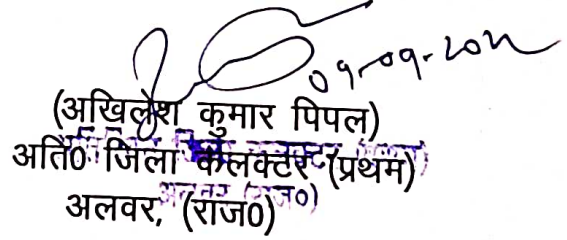 09-09-2022
(अखिलेश कुमार पिपल)
अति0 जिला कलक्टर (प्रथम)
अलवर, (राज0)